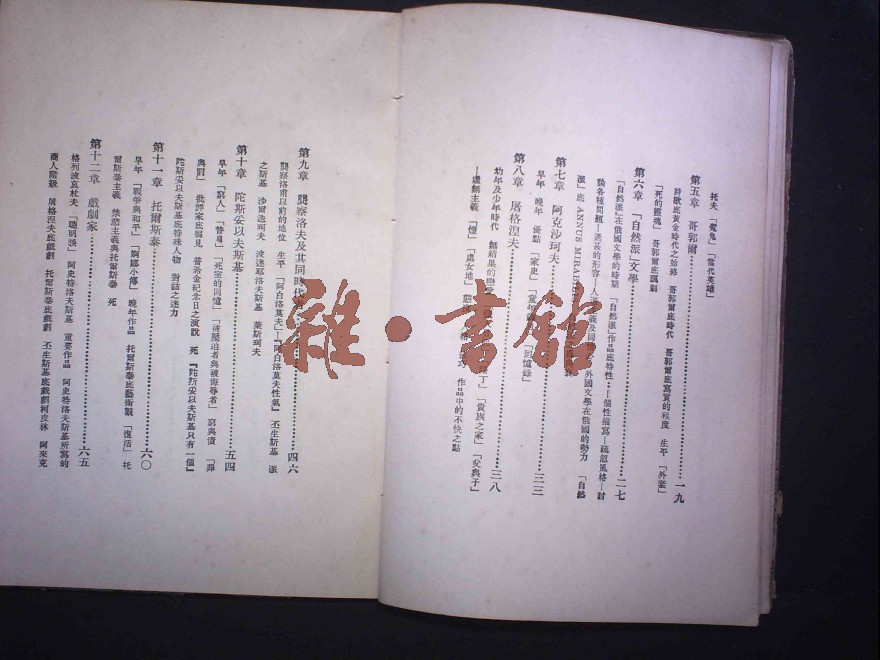 托夫 「魔鬼」 「當代英雄」
第五章 哥郭爾……一九
詩歌底黃金時代之始終 哥郭爾底時代 哥郭爾底寫實的程度 生平 「外套」
「死的靈魂」 哥郭爾底諷刺
第六章 「自然派」文學……二七
「自然派」在俄國文學的時期 「自然派」作品底特性——個性描寫——疏忽風格——討
論各種問題——過甚的形容——人道 義及同 外國文學在俄國的勢力 「自然
派」底 ANNUS MIRAB
第七章 阿克沙珂夫……三三
早年 晚年 優點 「家史」 「童年 回憶錄」
第八章 屠格涅夫……三八
幼年及少年時代 無結果的戀 丁」 「貴族之家」 「父與子」
——虛無主義 「煙」 「處女地」 作品中的不快之點
第九章 龔察洛夫及其同時代……四六
龔察洛甫以前的地位 生平 「阿白洛莫夫」——「阿白洛莫夫性氣」 丕生斯基 派
之斯基 沙爾造珂夫 波迷耶洛夫斯基 萊斯珂夫
第十章 陀斯妥以夫斯基……五四
早年 「窮人」 「替身」 「死室的回憶」 「被壓迫者與被侮辱者」 窮與債 「罪
與罰」 批評家底偏見 普希金紀念日之演說 死 「陀斯妥以夫斯基只有一個」
陀斯妥以夫斯基底特殊人物 對話之迷力
第十一章 托爾斯泰……六〇
早年 「戰爭與和平」 「婀娜小傳」 晚年作品 托爾斯泰底藝術觀 「復活」 托
爾斯泰主義 禁慾主義與托爾斯泰 死
第十二章 戲劇家……六五
格列波哀杜夫 「聰明誤」 阿史特洛夫斯基 重要作品 阿史特洛夫斯基所寫的
商人階級 屠格涅夫底戲劇 托爾斯泰底戲劇 丕生斯基底戲劇柯皮林 阿來克
雜·書館